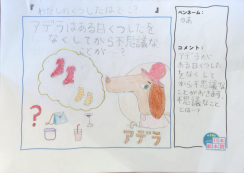 わたしのくつしたはどこ？
アデラはある日くつしたを
なくしてから不思議な
ことが…？
?
アデラ
ペンネーム：
コメント：
アデラがある
日くつしたを
なくして
から不思議な
ことがおきます。
不思議なこと
とは…？